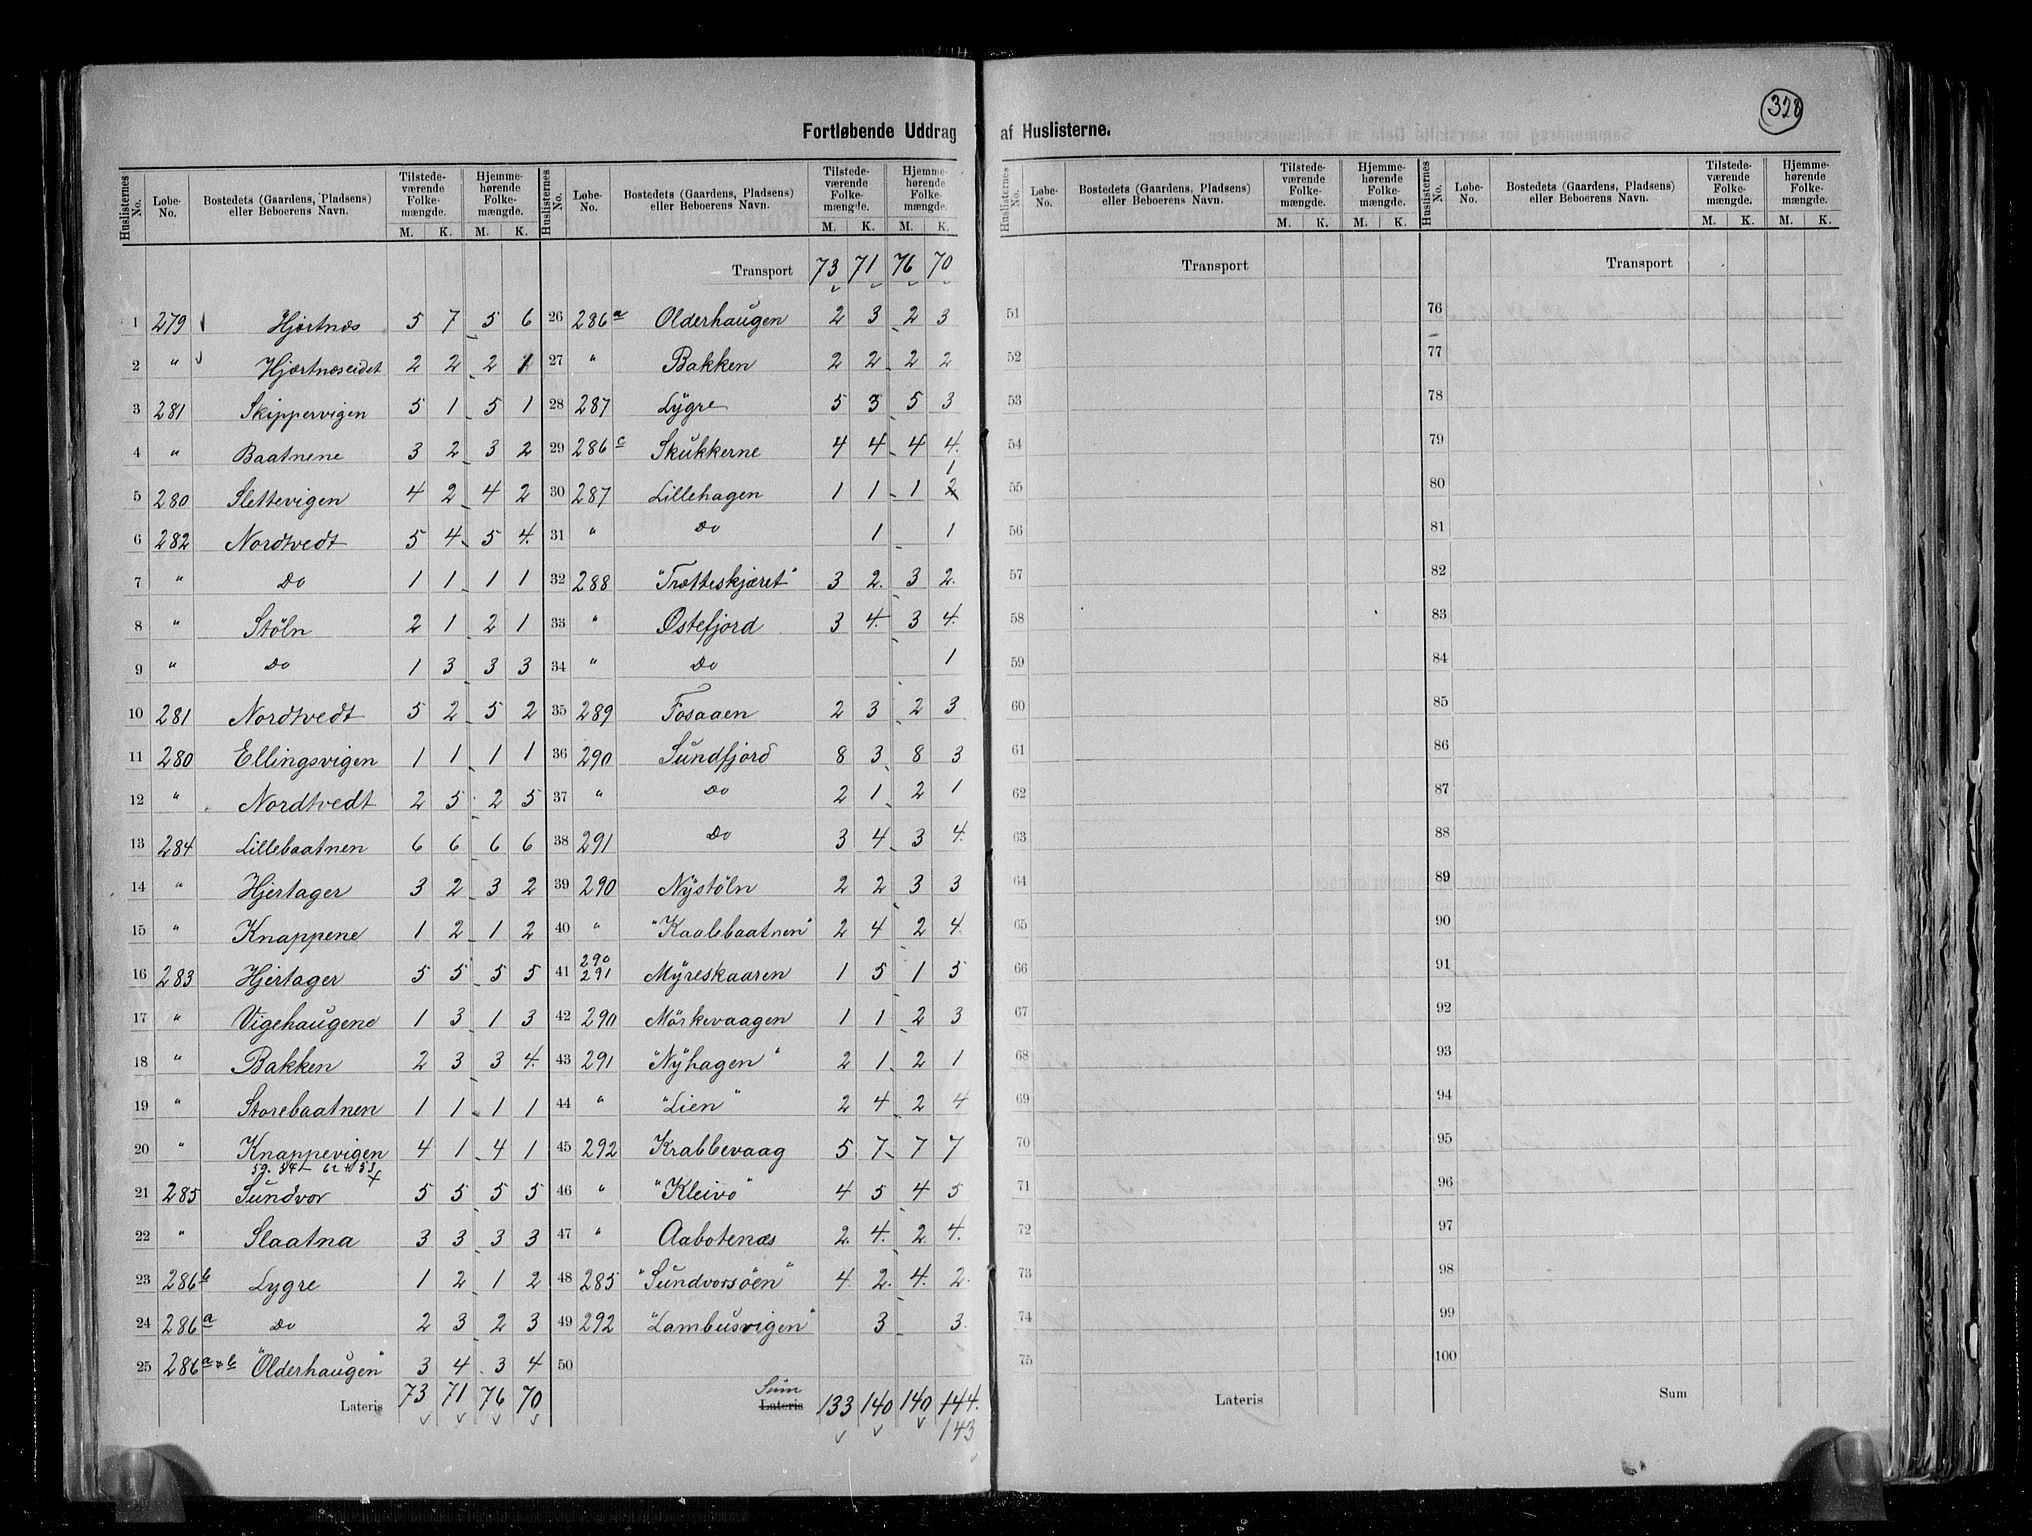 328
Fortløbende Uddrag af Huslisterne.
Huslisternes No. | Løbe-No. | Bostedets (Gaardens, Pladsens) eller Beboerens Navn. | Tilstedeværende Folkemængde. M. K. | Hjemmehørende Folkemængde. M. K.
1 | 279 | Hjærtnæs | 5 | 7 | 5 | 6
2 | " | Hjærtnæseidet | 2 | 2 | 2 | 1
3 | 281 | Skippervigen | 5 | 1 | 5 | 1
4 | " | Baatnene | 3 | 2 | 3 | 2
5 | 280 | Slettevigen | 4 | 2 | 4 | 2
6 | 282 | Nordtvedt | 5 | 4 | 5 | 4
7 | " | Do | 1 | 1 | 1 | 1
8 | " | Stöln | 2 | 1 | 2 | 1
9 | " | Do | 1 | 3 | 3 | 3
10 | 281 | Nordtvedt | 5 | 2 | 5 | 2
11 | 280 | Ellingsvigen | 1 | 1 | 1 | 1
12 | " | Nordtvedt | 2 | 5 | 2 | 5
13 | 284 | Lillebaatnen | 6 | 6 | 6 | 6
14 | " | Hjertager | 3 | 2 | 3 | 2
15 | " | Knappene | 1 | 2 | 1 | 2
16 | 283 | Hjertager | 5 | 5 | 5 | 5
17 | " | Vigehaugene | 1 | 3 | 1 | 3
18 | " | Bakken | 2 | 3 | 3 | 4
19 | " | Storebaatnen | 1 | 1 | 1 | 1
20 | " | Knappevigen | 4 | 1 | 4 | 1
21 | 285 | Sundvor | 5 | 5 | 5 | 5
22 | " | Slaatna | 3 | 3 | 3 | 3
23 | 286 b | Lygre | 1 | 2 | 1 | 2
24 | 286 a | Do | 2 | 3 | 2 | 3
25 | 286 a & b | "Olderhaugen" | 3 | 4 | 3 | 4
Lateris | 73 | 71 | 76 | 70
Huslisternes No. | Løbe-No. | Bostedets (Gaardens, Pladsens) eller Beboerens Navn. | Tilstedeværende Folkemængde. M. K. | Hjemmehørende Folkemængde. M. K.
Transport | 73 | 71 | 76 | 70
26 | 286 a | Olderhaugen | 2 | 3 | 2 | 3
27 | " | Bakken | 2 | 2 | 2 | 2
28 | 287 | Lygre | 5 | 3 | 5 | 3
29 | 286 c | Skukkerne | 4 | 4 | 4 | 4
30 | 287 | Lillehagen | 1 | 1 | 1 | 2 1
31 | " | Do | | 1 | | 1
32 | 288 | "Trætteskjæret" | 3 | 2 | 3 | 2
33 | " | Østefjord | 3 | 4 | 3 | 4
34 | " | Do | | | | 1
35 | 289 | Fosaaen | 2 | 3 | 2 | 3
36 | 290 | Sundfjord | 8 | 3 | 8 | 3
37 | " | Do | 2 | 1 | 2 | 1
38 | 291 | Do | 3 | 4 | 3 | 4
39 | 290 | Nystöln | 2 | 2 | 3 | 3
40 | " | "Kaalebaatnen" | 2 | 4 | 2 | 4
41 | 290 291 | Myreskaaren | 1 | 5 | 1 | 5
42 | 290 | Mörkevaagen | 1 | 1 | 2 | 3
43 | 291 | "Nyhagen" | 2 | 1 | 2 | 1
44 | " | "Lien" | 2 | 4 | 2 | 4
45 | 292 | Krabbevaag | 5 | 7 | 7 | 7
46 | " | "Kleivo" | 4 | 5 | 4 | 5
47 | " | Aabotenæs | 2 | 4 | 2 | 4
48 | 285 | "Sundvorsöen" | 4 | 2 | 4 | 2
49 | 292 | "Lambusvigen" | | 3 | | 3
50
Sum Lateris | 133 | 140 | 140 | 144 143
Huslisternes No. | Løbe-No. | Bostedets (Gaardens, Pladsens) eller Beboerens Navn. | Tilstedeværende Folkemængde. M. K. | Hjemmehørende Folkemængde. M. K.
Transport
51
52
53
54
55
56
57
58
59
60
61
62
63
64
65
66
67
68
69
70
71
72
73
74
75
Lateris
Huslisternes No. | Løbe-No. | Bostedets (Gaardens, Pladsens) eller Beboerens Navn. | Tilstedeværende Folkemængde. M. K. | Hjemmehørende Folkemængde. M. K.
Transport
76
77
78
79
80
81
82
83
84
85
86
87
88
89
90
91
92
93
94
95
96
97
98
99
100
Sum